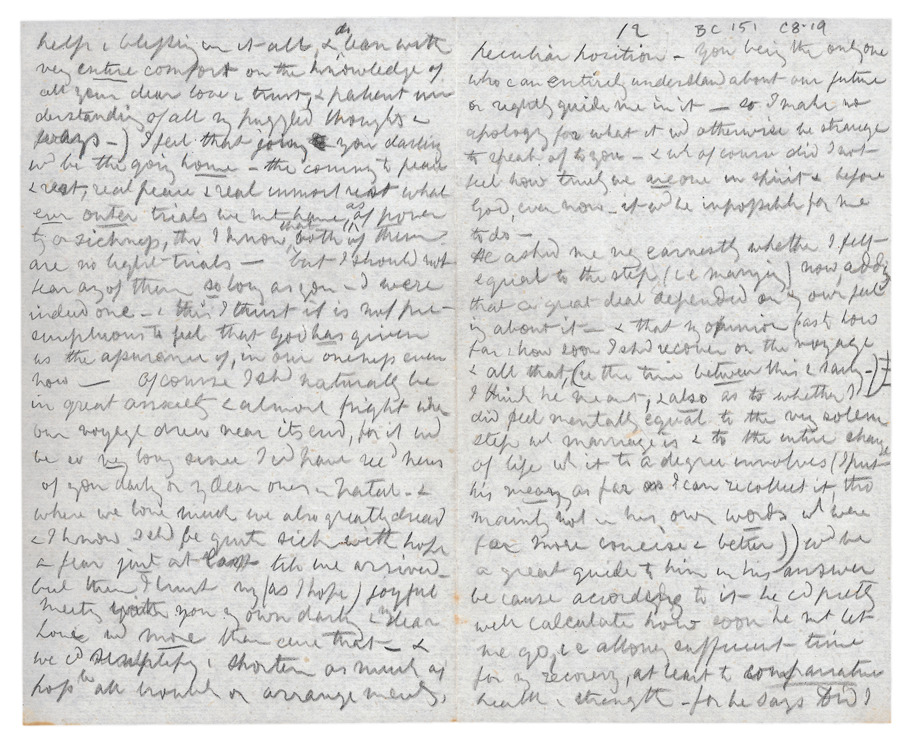 help & blessing in it all, & do lean with
very entire comfort on the knowledge of
all your dear love & trust, & patient un
derstanding of all my puzzled thoughts &
ways -) I feel that joining you darling
wd be the going home - the coming to peace
& rest, real peace & real inmost rest what
ever outer trials we mt have, as of power
ty or sickness, tho' I know that both of them
are no light trials - but I should not
fear any of them so long as you & I were
indeed one - & this I trust it is not pre-
sumptuous to feel that God has given
us the assurance of, in our oneness even
now - Of course I shd naturally be
in great anxiety & almost fright when
our voyage drew near its end, for it wd
be so very long since I cd have recd news
of you darling or my dear ones in Natal - &
where we love much we also greatly dread
& I know I shd be quite sick with hope
& fear just at last till we arrived -
but then I trust my (as I hope) joyful
meeting with you my own darling & dear
love wd more than cure that - &
we cd simplify & shorten as much as
possible all trouble or arrangements,
12 BC 151 C8-19
peculiar position - You being the only one
who can entirely understand about our future
or rightly guide me in it - so I make no
apology for what it wd otherwise be strange
to speak of to you - & wh of course did I not
feel how truly we are one in spirit & before
God, even now - it wd be impossible for me
to do -
He asked me very earnestly whether I felt
equal to the step (i.e. marriage) now, adding
that a great deal depended on my own feel
ing about it - & that my opinion (as to how
far & how soon I shd recover on the voyage
& all that, (ie the time between this & early -)
I think he meant, & also as to whether I
did feel mentally equal to the very solemn
step wh marriage is & to the entire change
of life wh it to a degree involves (I put
his meaning as far as I can recollect it, tho
mainly not in his own words wh were
far more concise & better)) wd be
a great guide to him in his answer
because according to it he cd pretty
well calculate how soon he mt let
me go, i.e. allowing sufficient time
for my recovery, at least to comparative
health & strength - for he says Did I